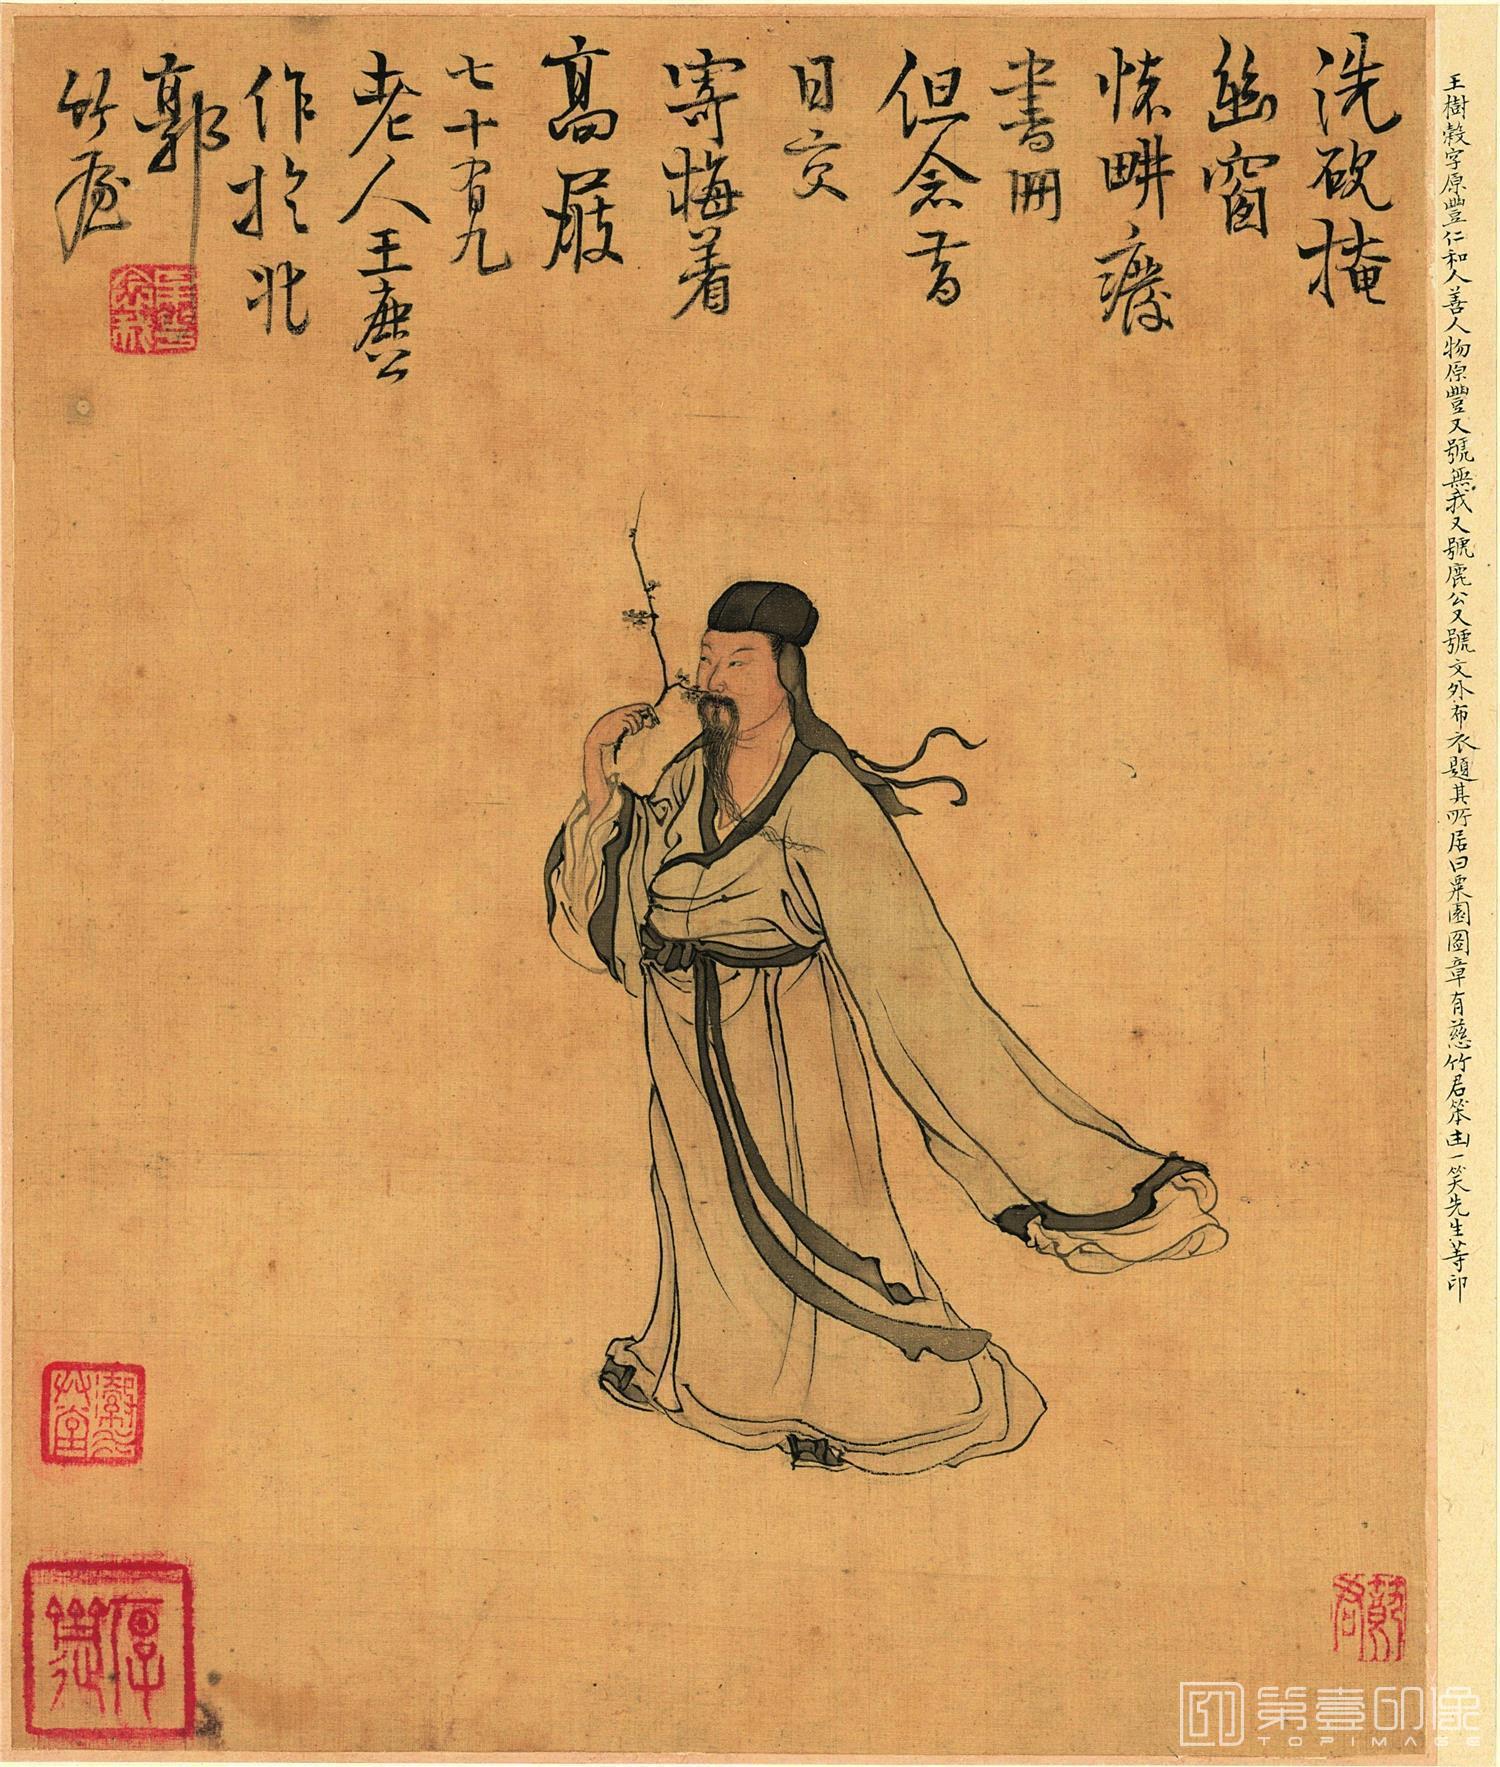 洗硯掩
幽窗
怯畊癈
書冊
但念昔
日交
寄梅着
高屐
七十有九
老人王鹿公
作於北
郭
竹屋
王樹穀字原豐仁和人善人物原豐又號無我又號鹿公又號文外布衣題其所居曰栗園圖章有慈竹君笨由一笑先生等印
草堂
第壹印像
TOPIMAGE